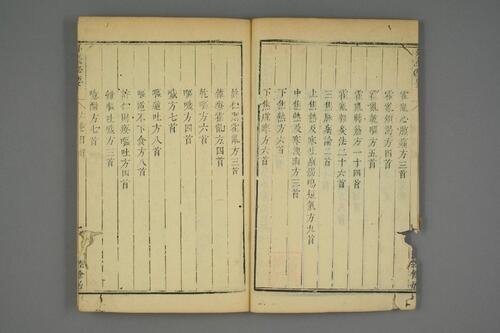 霍亂心腹痛方三首
霍亂煩渴方四首
霍亂乾嘔方五首
霍亂轉筋方一十四首
霍亂雜灸法二十六首
三焦脉病論二首
上焦熱及寒吐瀉腸鳴短氣方九首
中焦熱及寒洩痢方三首
下焦熱方六首
下焦虛寒方六首
許仁則霍亂方三首
療霍亂方四首
乾嘔方六首
嘔噦方四首
噦方七首
嘔逆吐方八首
嘔逆不下食方八首
許仁則療嘔吐方四首
吐方三首
噫醋方七首